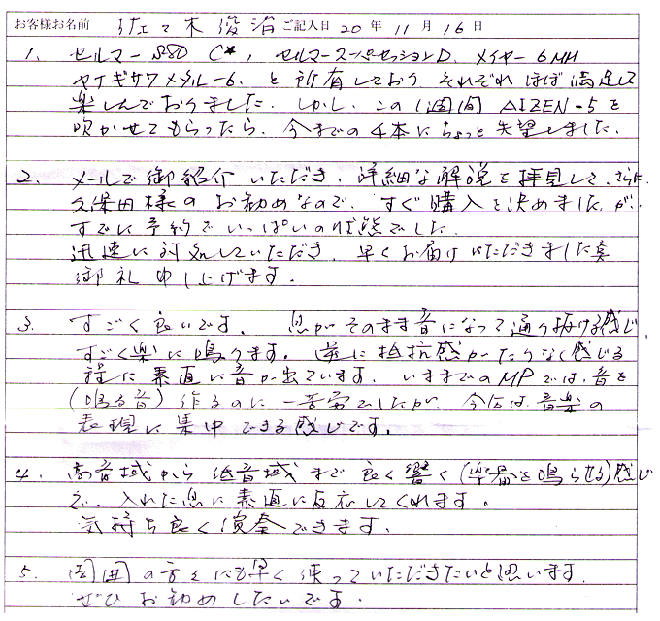 お客様お名前 佐々木俊治 ご記入日 20 年 11 月 16 日
1. セルマー S80 C*, セルマースーパーセッションD. メイヤー 6MM
ヤナギサワメタル-6. を所有しており それぞれ ほぼ満足して
楽しんでおりました. しかし、この1週間 AIZEN-5を
吹かせてもらったら、今までの4本にちょっと失望しました.
2. メールで御紹介いただき. 詳細な解説を拝見して. さらに
久保田様のお勧めなので、すぐ購入を決めましたが.
すでに予約でいっぱいの状態でした.
迅速に対処していただき. 早くお届けいただきました事
御礼申し上げます.
3. すごく良いです. 息がそのまま音になって通り抜ける感じ.
すごく楽に鳴ります. 逆に抵抗感がたりなく感じる
程に素直に音が出ています. いままでのMPでは、音を
(鳴る音) 作るのに一苦労でしたが、今後は音楽の
表現に集中できる感じです.
4. 高音域から低音域まで良く響く(楽器を鳴らせる)感じ
で. 入れた息に素直に反応してくれます.
気持ち良く演奏できます.
5. 周囲の方々にも早く使っていただきたいと思います.
ぜひお勧めしたいです.